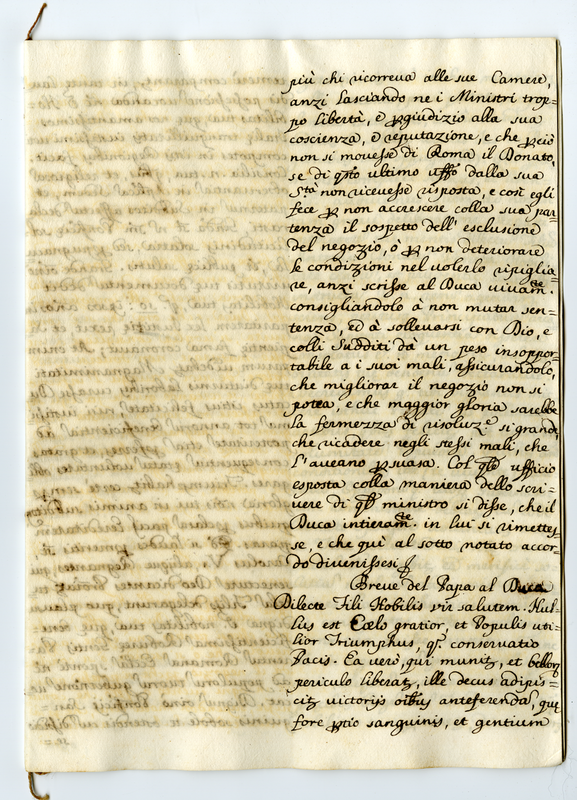 più chi ricorreva alle sue Camere,
anzi lasciando ne i Ministri trop=
po libertà, è pregiudizio alla sua
coscienza, è reputazione, e che perciò
non si movesse di Roma il Donato,
se di qsto ultimo uffo dalla sua
Stà non ricevesse risposta, e così egli
fece per non accrescere colla sua par=
tenza il sospetto dell' esclusione
del negozio, ò per non deteriorare
le condizioni nel volerlo ripiglia=
re, anzi scrisse al Duca vivamte.
consigliandolo à non mutar sen=
tenza, ed à sollevarsi con Dio, e
colli Sudditi dà un peso insoppor=
tabile a i suoi mali, assicurandolo,
che migliorar il negozio non si
potea, e che maggior gloria sarebbe
la fermezza di risoluze si grande,
che ricadere negli stessi mali, che
l'aveano persuasa. Col qle ufficio
esposta colla maniera dello scri=
vere di qsto ministro si disse, che il
Duca intieramte. in lui si rimettes=
se, e che quì al sotto notato accor=
do divenissesi
Breve del Papa al Duca
Dilecte Fili Nobilis vir salutem. Nul=
lus est Cœlo gratior, et Populis uti=
lior Triumphus, q. conservatio
Pacis. Ea vero, qui munit, et bellorum
periculo liberat, ille decus adipis=
cit victorijs oibus anteferendā, qui
fore ptio sanguinis, et gentium